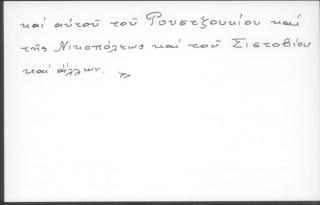 καί αὐτοῦ τοῦ Ρουστζουκίου καί
τῆς Νικοπόλεως καί τοῦ Σιστοβίου
καί ἄλλων.